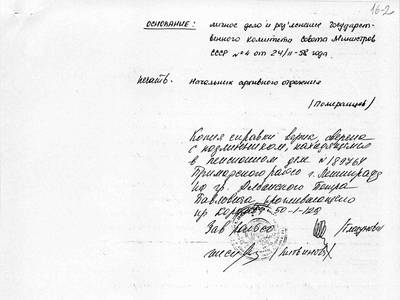 16-2
ОСНОВАНИЕ: личное дело и раз'яснение Государст-
венного Комитета Совета Министров
СССР №4 от 24/II-58 года.
Печать. Начальник архивного отделения
(Померанцев)
Копия справки верна, сверена
с подлинником, находящимся
в пенсионном деле № 189764
Приморского райсо г. Ленинграда
по гр. Петра
Павловича проживающего
пр 50-1-128
Зав райсо
инсп. /Литвинова/